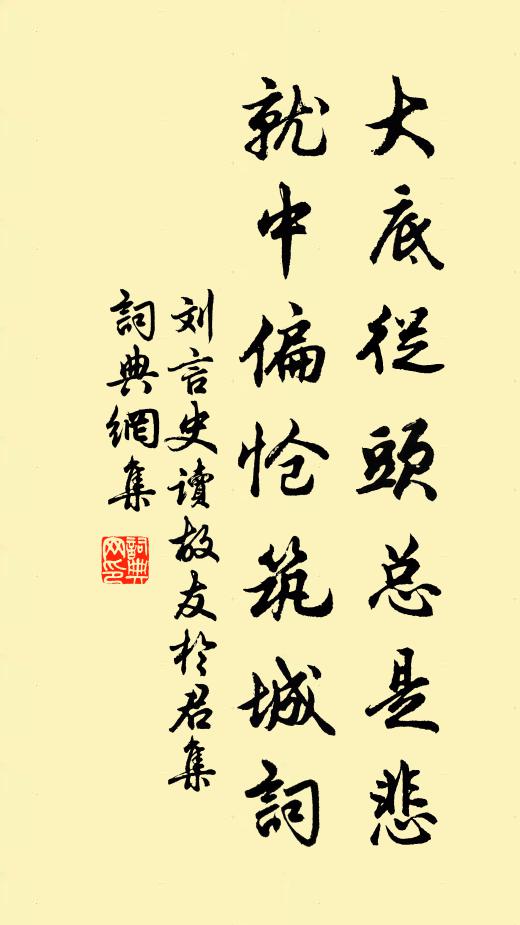 大底從頭总是悲
就中偏怆筑城詞
刘言史讀故友於君集
詞典網集
詞典网印